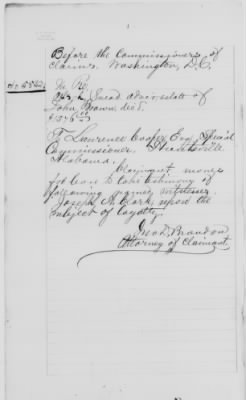 Before the Commissioners of
Claims. Washington, D.C.
No
The
Snead admr. estate of
John Brown, dec'd.
To Lawrence Cooper Esq Special
Commissioner. Huntsville
Alabama.
Claimant moves
for leave to take testimony of
following named witness.
Joseph A. Clark, upon the
subject of loyalty.
Geo D. Brandon
Attorney of Claimant